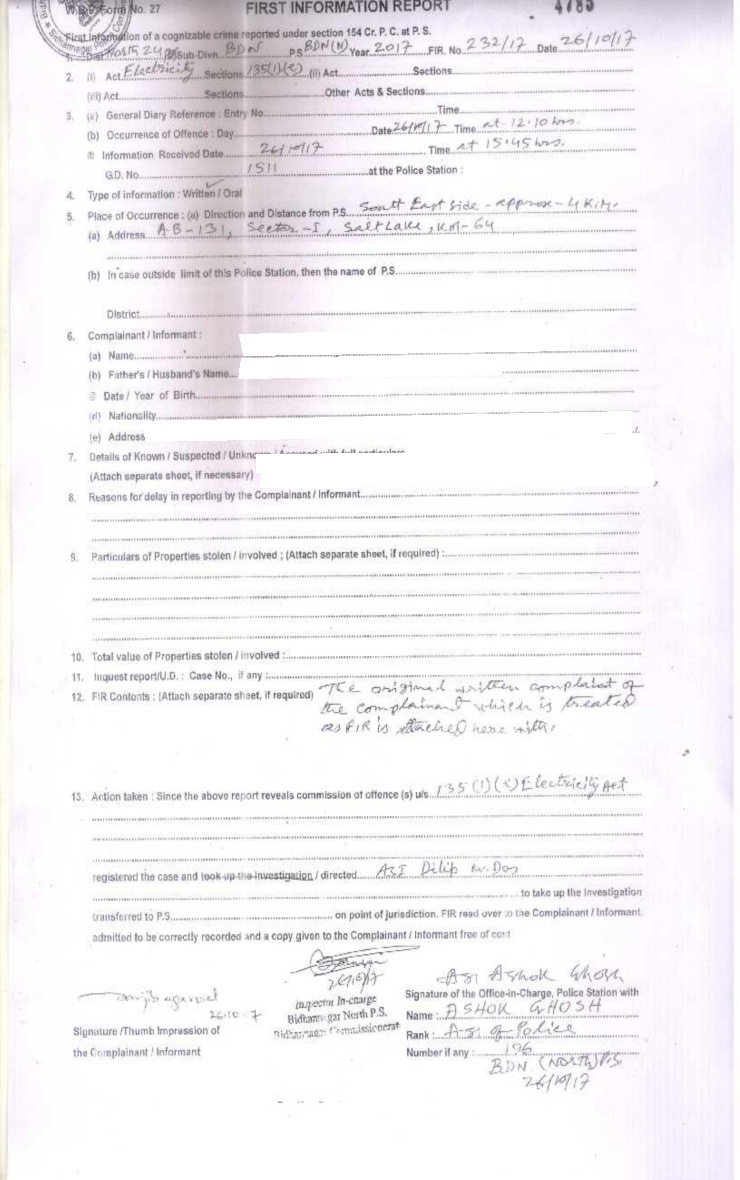 W.B.P. Form No. 27 FIRST INFORMATION REPORT 4785
First Information of a cognizable crime reported under section 154 Cr. P. C. at P. S.
1. Dist North 24 Sub-Divn. BDN P.S BDN(N) Year 2017 FIR. No 232/17 Date 26/10/17
2. (i) Act Electricity Sections 135(1)(c) (ii) Act Sections
(iii) Act Sections Other Acts & Sections
3. (a) General Diary Reference : Entry No Time
(b) Occurrence of Offence : Day Date 26/10/17 Time at 12.10 hrs.
Information Received Date 26/10/17 Time at 15.45 hrs.
G.D. No 1511 at the Police Station :
4. Type of information : Written / Oral
5. Place of Occurrence : (a) Direction and Distance from P.S. South East side - approx - 4 K.M.
(a) Address AB-131, Sector-I, Salt Lake, Kol-64
(b) In case outside limit of this Police Station, then the name of P.S.
District
6. Complainant / Informant :
(a) Name
(b) Father's / Husband's Name
Date / Year of Birth
(d) Nationality
(e) Address
7. Details of Known / Suspected / Unknown / Accused with full particulars
(Attach separate sheet, if necessary)
8. Reasons for delay in reporting by the Complainant / Informant
9. Particulars of Properties stolen / involved ; (Attach separate sheet, if required) :
10. Total value of Properties stolen / involved :
11. Inquest report/U.D. : Case No., if any :
12. FIR Contents : (Attach separate sheet, if required) The original written complaint of
the complainant which is treated
as FIR is attached here with.
13. Action taken : Since the above report reveals commission of offence (s) u/s 135 (1) (c) Electricity Act
registered the case and took up the investigation / directed ASI Dilip Kr. Das
to take up the Investigation
transferred to P.S. on point of jurisdiction. FIR read over to the Complainant / Informant,
admitted to be correctly recorded and a copy given to the Complainant / Informant free of cost
26/10/17
Inspector In-charge
Bidhannagar North P.S.
Bidhannagar Commissionerate
26.10.17
Signature /Thumb Impression of
the Complainant / Informant
ASI Ashok Ghosh
Signature of the Office-in-Charge, Police Station with
Name : ASHOK GHOSH
Rank : ASI of Police
Number if any : 196
BDN (NORTH) P.S.
26/10/17